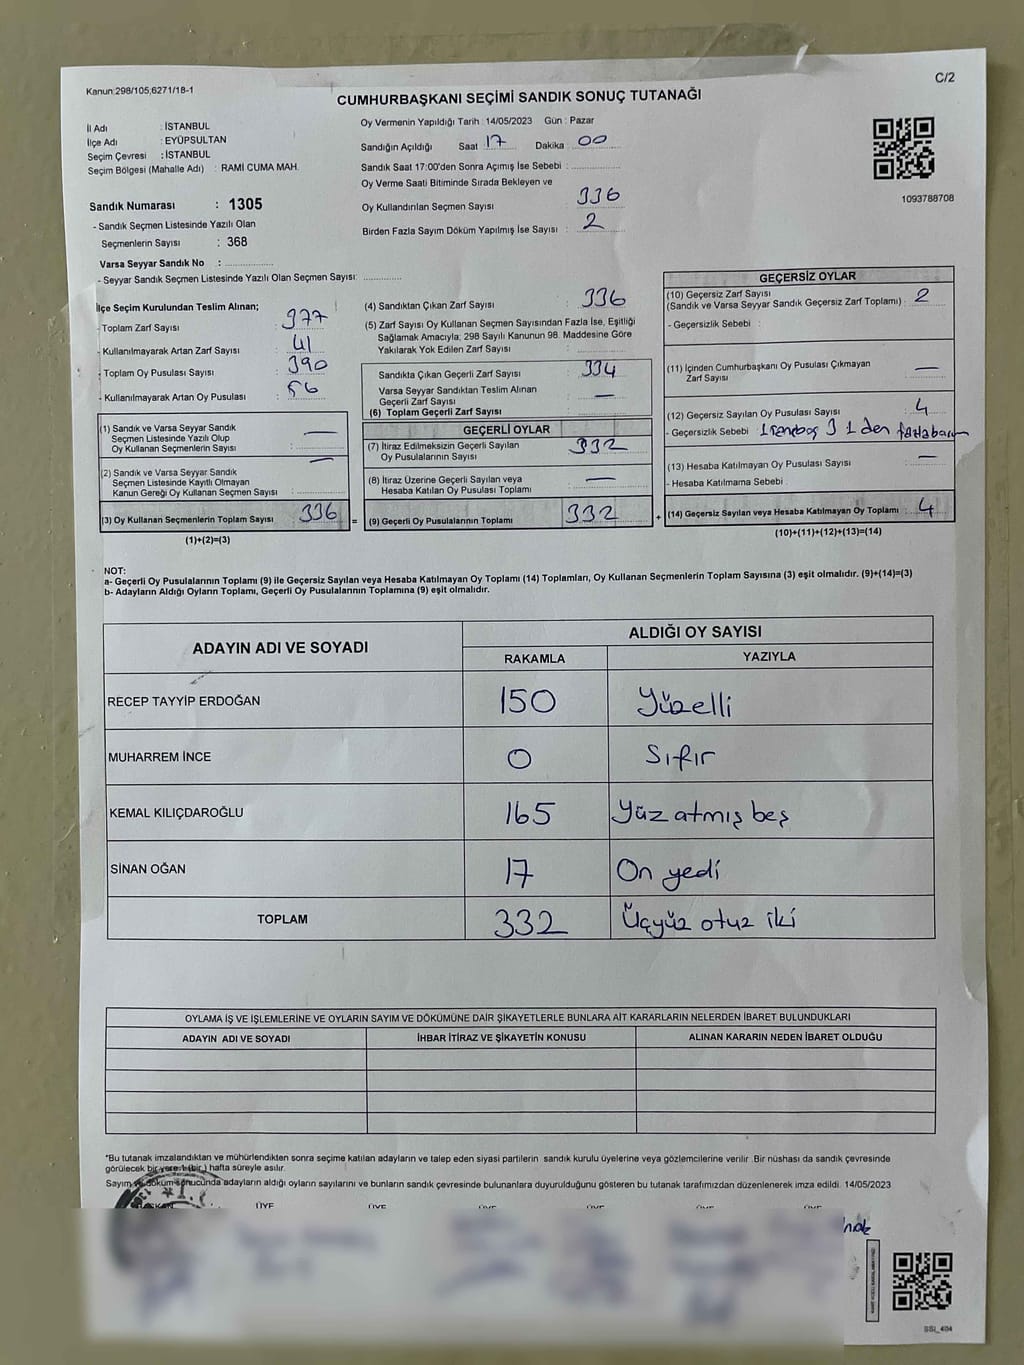 Kanun:298/105;6271/18-1
C/2
CUMHURBAŞKANI SEÇİMİ SANDIK SONUÇ TUTANAĞI
İl Adı : İSTANBUL
İlçe Adı : EYÜPSULTAN
Seçim Çevresi : İSTANBUL
Seçim Bölgesi (Mahalle Adı) : RAMİ CUMA MAH.
Sandık Numarası : 1305
- Sandık Seçmen Listesinde Yazılı Olan
Seçmenlerin Sayısı : 368
Varsa Seyyar Sandık No :
- Seyyar Sandık Seçmen Listesinde Yazılı Olan Seçmen Sayısı:
Oy Vermenin Yapıldığı Tarih : 14/05/2023 Gün : Pazar
Sandığın Açıldığı Saat 17 Dakika 00
Sandık Saat 17:00'den Sonra Açımış İse Sebebi :
Oy Verme Saati Bitiminde Sırada Bekleyen ve
Oy Kullandırılan Seçmen Sayısı : 336
Birden Fazla Sayım Döküm Yapılmış İse Sayısı : 2
1093788708
İlçe Seçim Kurulundan Teslim Alınan;
- Toplam Zarf Sayısı : 377
- Kullanılmayarak Artan Zarf Sayısı : 41
- Toplam Oy Pusulası Sayısı : 390
- Kullanılmayarak Artan Oy Pusulası : 56
(1) Sandık ve Varsa Seyyar Sandık
Seçmen Listesinde Yazılı Olup
Oy Kullanan Seçmenlerin Sayısı : —
(2) Sandık ve Varsa Seyyar Sandık
Seçmen Listesinde Kayıtlı Olmayan
Kanun Gereği Oy Kullanan Seçmen Sayısı : —
(3) Oy Kullanan Seçmenlerin Toplam Sayısı : 336 =
(1)+(2)=(3)
(4) Sandıktan Çıkan Zarf Sayısı : 336
(5) Zarf Sayısı Oy Kullanan Seçmen Sayısından Fazla İse, Eşitliği
Sağlamak Amacıyla; 298 Sayılı Kanunun 98. Maddesine Göre
Yakılarak Yok Edilen Zarf Sayısı :
Sandıkta Çıkan Geçerli Zarf Sayısı : 334
Varsa Seyyar Sandıktan Teslim Alınan
Geçerli Zarf Sayısı : —
(6) Toplam Geçerli Zarf Sayısı :
GEÇERLİ OYLAR
(7) İtiraz Edilmeksizin Geçerli Sayılan
Oy Pusulalarının Sayısı : 332
(8) İtiraz Üzerine Geçerli Sayılan veya
Hesaba Katılan Oy Pusulası Toplamı : —
(9) Geçerli Oy Pusulalarının Toplamı : 332 +
GEÇERSİZ OYLAR
(10) Geçersiz Zarf Sayısı
(Sandık ve Varsa Seyyar Sandık Geçersiz Zarf Toplamı) : 2
- Geçersizlik Sebebi :
(11) İçinden Cumhurbaşkanı Oy Pusulası Çıkmayan
Zarf Sayısı : —
(12) Geçersiz Sayılan Oy Pusulası Sayısı : 4
- Geçersizlik Sebebi : 3 1 den
(13) Hesaba Katılmayan Oy Pusulası Sayısı : —
- Hesaba Katılmama Sebebi :
(14) Geçersiz Sayılan veya Hesaba Katılmayan Oy Toplamı : 4
(10)+(11)+(12)+(13)=(14)
NOT:
a- Geçerli Oy Pusulalarının Toplamı (9) ile Geçersiz Sayılan veya Hesaba Katılmayan Oy Toplamı (14) Toplamları, Oy Kullanan Seçmenlerin Toplam Sayısına (3) eşit olmalıdır. (9)+(14)=(3)
b- Adayların Aldığı Oyların Toplamı, Geçerli Oy Pusulalarının Toplamına (9) eşit olmalıdır.
ADAYIN ADI VE SOYADI
ALDIĞI OY SAYISI
RAKAMLA YAZIYLA
RECEP TAYYİP ERDOĞAN 150 Yüzelli
MUHARREM İNCE 0 Sıfır
KEMAL KILIÇDAROĞLU 165 Yüz atmış beş
SİNAN OĞAN 17 On yedi
TOPLAM 332 Üçyüz otuz iki
OYLAMA İŞ VE İŞLEMLERİNE VE OYLARIN SAYIM VE DÖKÜMÜNE DAİR ŞİKAYETLERLE BUNLARA AİT KARARLARIN NELERDEN İBARET BULUNDUKLARI
ADAYIN ADI VE SOYADI İHBAR İTİRAZ VE ŞİKAYETİN KONUSU ALINAN KARARIN NEDEN İBARET OLDUĞU
*Bu tutanak imzalandıktan ve mühürlendikten sonra seçime katılan adayların ve talep eden siyasi partilerin sandık kurulu üyelerine veya gözlemcilerine verilir .Bir nüshası da sandık çevresinde
görülecek bir yere 1 (bir ) hafta süreyle asılır.
Sayım ve döküm sonucunda adayların aldığı oyların sayılarını ve bunların sandık çevresinde bulunanlara duyurulduğunu gösteren bu tutanak tarafımızdan düzenlenerek imza edildi. 14/05/2023
BAŞKAN ÜYE ÜYE ÜYE ÜYE ÜYE ÜYE
SSİ_404